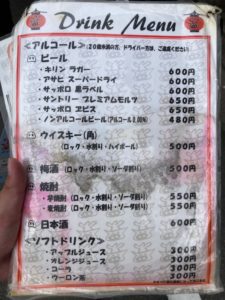 Drink Menu
<アルコール> (20歳未満の方、ドライバー方は、ご遠慮ください)
ビール
・キリン ラガー 600円
・アサヒ スーパードライ 600円
・サッポロ 黒ラベル 600円
・サントリー プレミアムモルツ 650円
・サッポロ ヱビス 650円
・ノンアルコールビール(アルコール0.00%) 480円
ウイスキー(角)
(ロック・水割り・ハイボール) 500円
梅酒(ロック・水割り・ソーダ割り) 500円
焼酎
・芋焼酎(ロック・水割り・ソーダ割り) 550円
・麦焼酎(ロック・水割り・ソーダ割り) 550円
日本酒 600円
<ソフトドリンク>
・アップルジュース 300円
・オレンジジュース 300円
・コーラ 300円
・ウーロン茶 300円